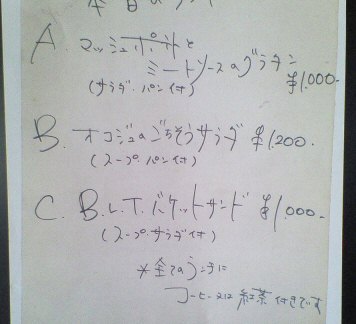 本日のランチ
A. マッシュポテトと
ミートソースのグラタン
(サラダ.パン付) ¥1,000-
B. オコジョのごちそうサラダ ¥1,200-
(スープ.パン付)
C. B.L.T.バケットサンド ¥1,000-
(スープ.サラダ付)
*全てのランチに
コーヒー又は紅茶付きです